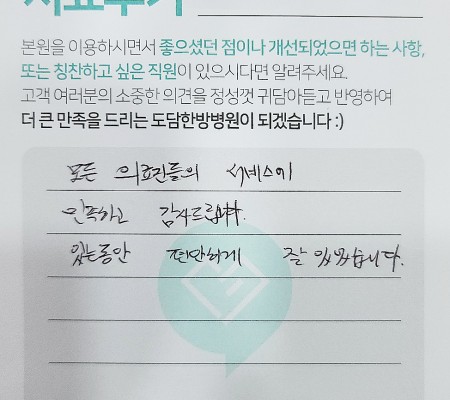 치료후기
본원을 이용하시면서 좋으셨던 점이나 개선되었으면 하는 사항,
또는 칭찬하고 싶은 직원이 있으시다면 알려주세요.
고객 여러분의 소중한 의견을 정성껏 귀담아듣고 반영하여
더 큰 만족을 드리는 도담한방병원이 되겠습니다 :)
모든 의료진들의 서비스에
만족하고 감사드립니다.
있는동안 편안하게 잘 있었습니다.